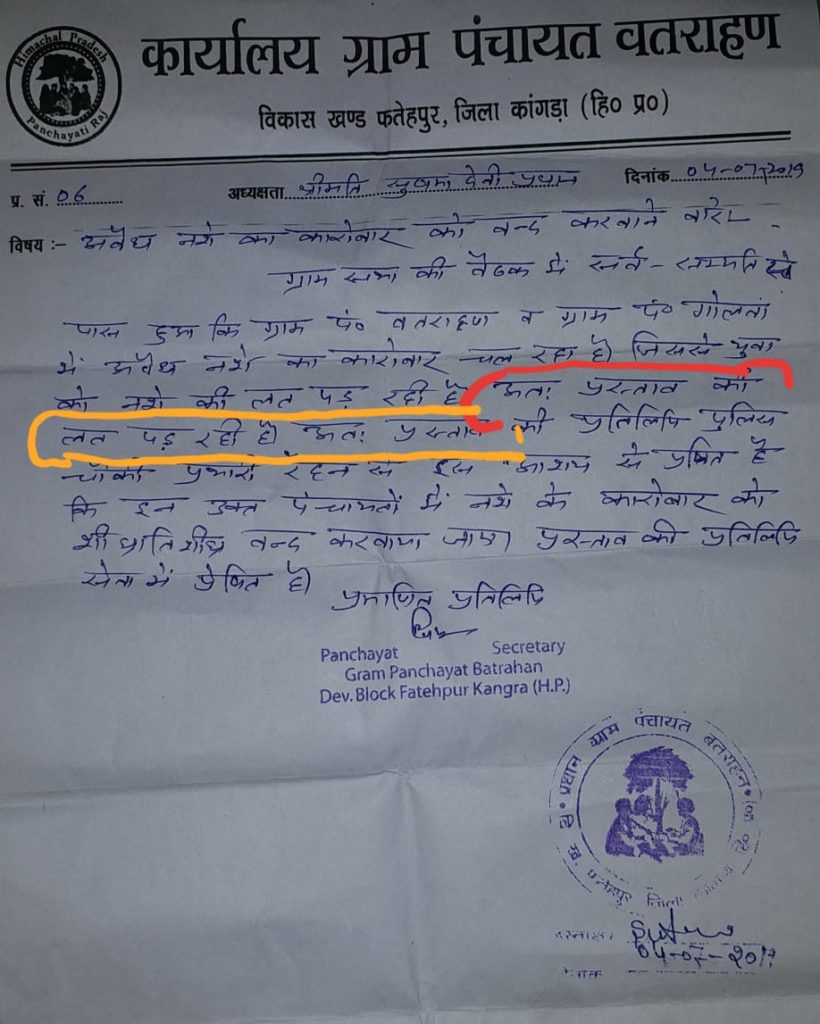 Himachal Pradesh
Panchayati Raj
कार्यालय ग्राम पंचायत वतराहण
विकास खण्ड फतेहपुर, जिला कांगड़ा (हि० प्र०)
प्र. सं. 06 अध्यक्षता श्रीमति सुषमा देवी प्रधान दिनांक 04-07-2019
विषय :- अवैध नशे का कारोबार को बन्द करवाने बारे।
ग्राम सभा की बैठक में सर्व-सम्मति से
पास हुआ कि ग्राम पं० वतराहण व ग्राम पं० गोलवां
में अवैध नशे का कारोबार चल रहा है। जिससे युवा
को नशे की लत पड़ रही है अतः प्रस्ताव की
लत पड़ रही है। अतः प्रस्ताव की प्रतिलिपि पुलिस
चौकी प्रभारी रैहन से इस आशय से प्रेषित है
कि इन उक्त पंचायतों में नशे के कारोबार को
शीघ्रातिशीघ्र बन्द करवाया जाए। प्रस्ताव की प्रतिलिपि
सेवा में प्रेषित है।
प्रमाणित प्रतिलिपि
Panchayat Secretary
Gram Panchayat Batrahan
Dev. Block Fatehpur Kangra (H.P.)
प्रधान ग्राम पंचायत बतराहन
ख. फतेहपुर जिला
04-07-2019